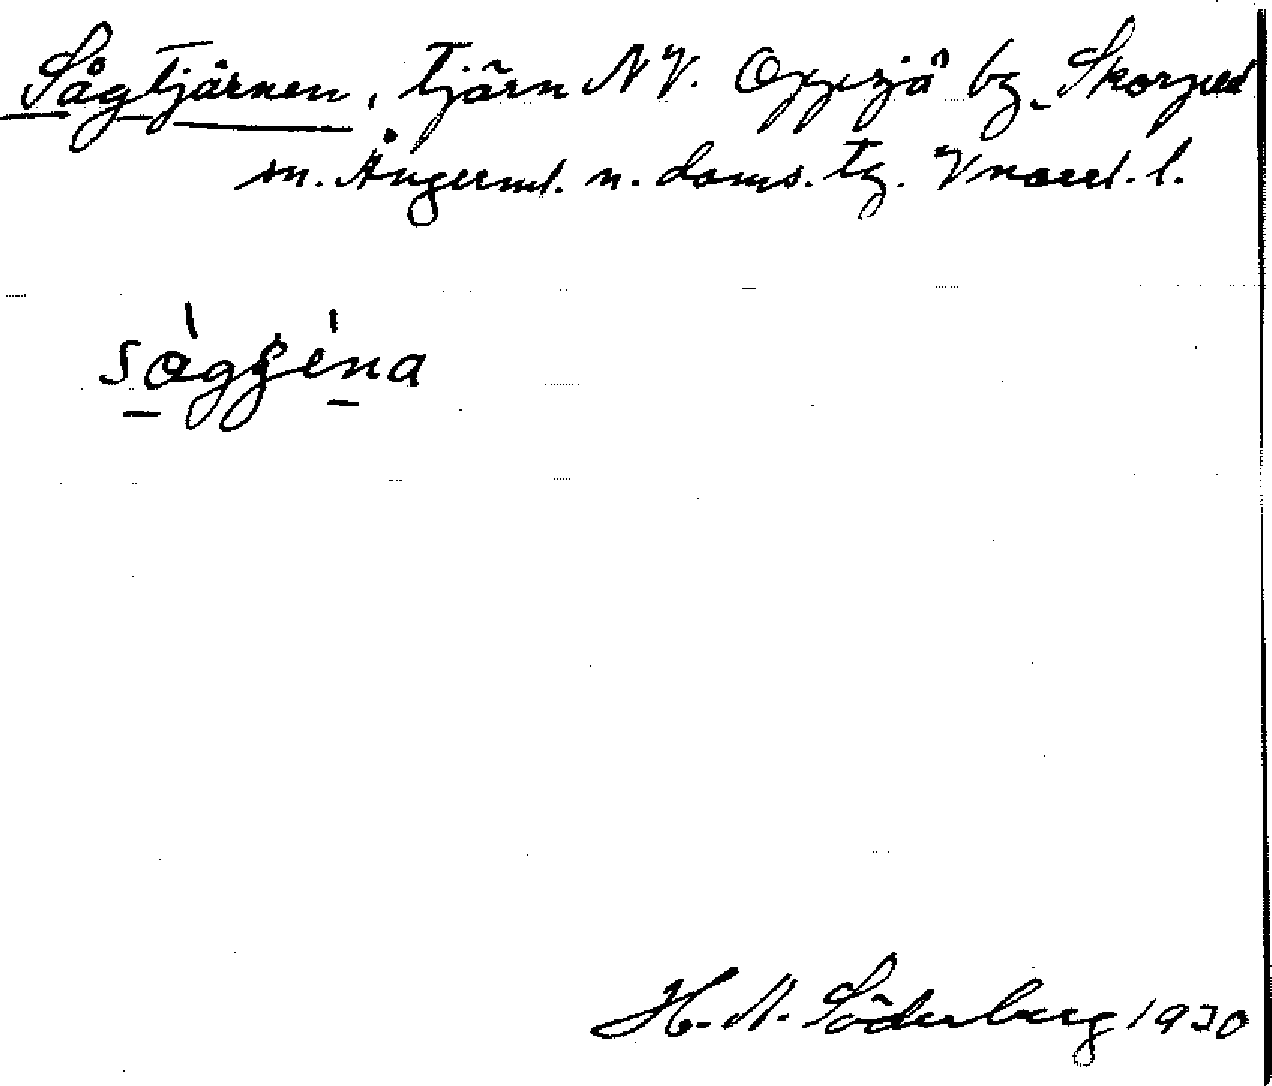 Sågtjärnen, tjärn NV. Oppsjö by, Skorped
sn. Ångerml. n. doms. tg. Vnorrl. l.
såggena
H. N. Söderberg 1930